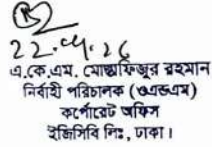 22.04.26
এ.কে.এম. মোস্তাফিজুর রহমান
নির্বাহী পরিচালক (ওএন্ডএম)
কর্পোরেট অফিস
ইজিসিবি লিঃ, ঢাকা।